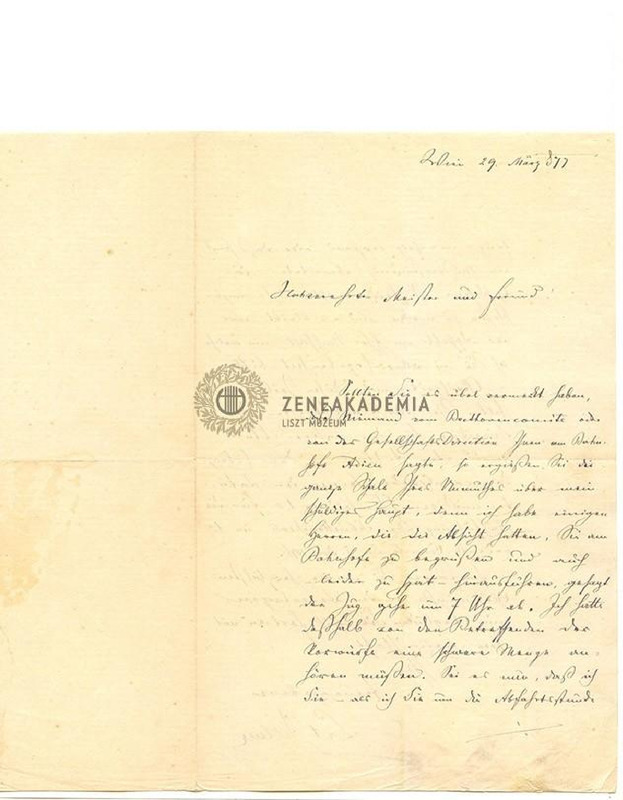 Wien 29. März 877
Hochverehrter Meister und Freund!
Sollten Sie es übel vermerkt haben,
daß Niemand vom Beethovencomité oder
von der Gesellschafts Direction Ihnen am Bahn-
hofe Adieu sagte, so ergießen Sie die
ganze Schale Ihres Unmuthes über mein
schuldiges Haupt, denn ich habe einigen
Herren, die die Absicht hatten, Sie am
Bahnhofe zu begrüßen und auch
– leider zu spät – hinausfuhren, gesagt
der Zug gehe um 7 Uhr ab. Ich hatte
deßhalb von den Betreffenden der
Vorwürfe eine schwere Menge an-
hören müßen. Sei es nun, daß ich
Sie – als ich Sie um die Abfahrtsstunde
ZENEAKADÉMIA
LISZT MÚZEUM